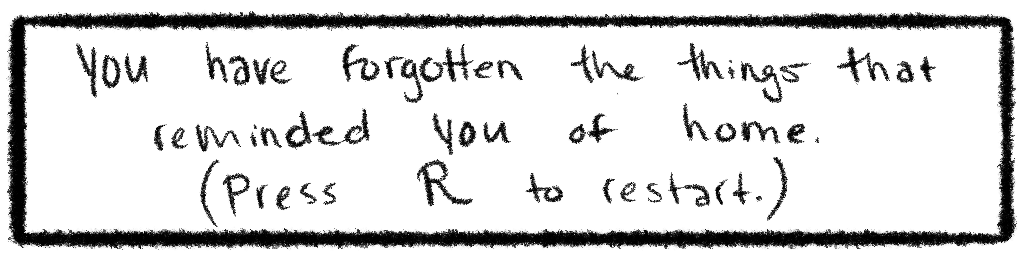 You have forgotten the things that
reminded you of home.
(Press R to restart.)